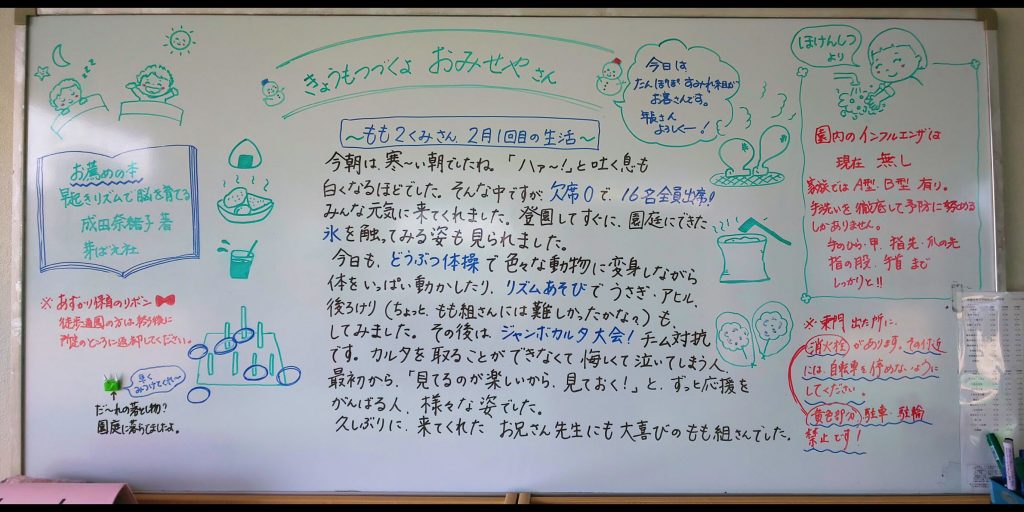 きょうもつづくよ おみせやさん
今日は
たんぽぽ すみれ組が
お客さんです。
年長さん
よろしくー!
ほけんしつ
より
zzz
お薦めの本
早起きリズムで脳を育てる
成田奈緒子 著
芽ばえ社
※あずかり保育のリボン
徒歩通園の方は
ください。
早く
みつけてくれ〜
だ〜れの落とし物?
園庭に落ちてましたよ。
〜もも2くみさん 2月1回目の生活〜
今朝は、寒〜い朝でしたね。「ハァ〜!」と吐く息も
白くなるほどでした。そんな中ですが、欠席0で、16名全員出席!!
みんな元気に来てくれました。登園してすぐに、園庭にできた
氷を触ってみる姿も見られました。
今日も、どうぶつ体操で色々な動物に変身しながら
体をいっぱい動かしたり、リズムあそびでうさぎ・アヒル、
後ろけり(ちょっと、もも組さんには難しかったかなぁ)も、
してみました。その後は、ジャンボカルタ大会!チーム対抗
です。カルタを取ることができなくて悔しくて泣いてしまう人、
最初から、「見てるのが楽しいから、見ておく!」と、ずっと応援を
がんばる人、様々な姿でした。
久しぶりに、来てくれた お兄さん先生にも大喜びのもも組さんでした。
園内のインフルエンザは
現在 無し
家族ではA型・B型 有り。
手洗いを徹底して予防に努める
しかありません。
手のひら・甲、指先・爪の先
指の股、手首 まで
しっかりと!!
※東門 出た所に、
消火栓があります。その付近
には、自転車を停めないように
してください。
黄色部分 駐車・駐輪
禁止です!